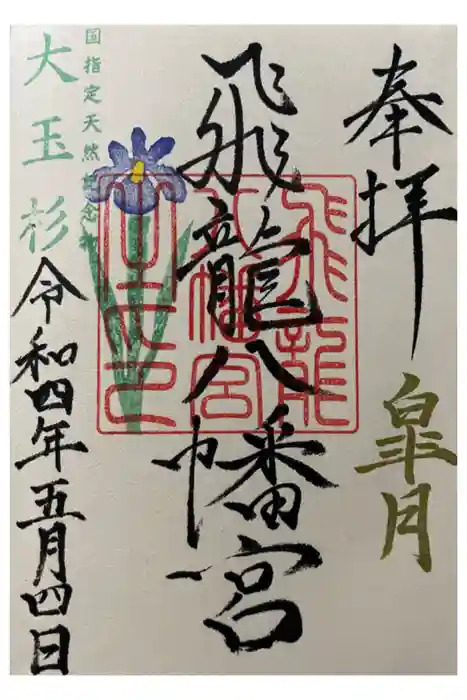 奉拝
皐月
飛龍八幡宮
飛龍
八幡宮
国指定天然記念木
大玉杉
令和四年五月四日